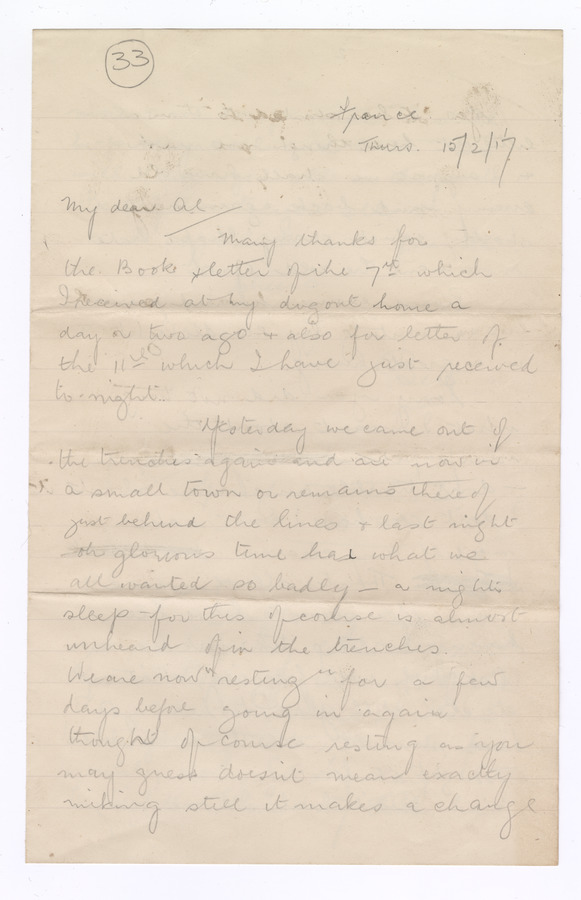 33
France
Thurs. 15/2/17
My dear Al
Many thanks for
the Book & letter of the 7th which
I received at my dugout home a
day or two ago & also for letter of
the 11th which I have just received
to-night.
Yesterday we came out of
the trenches again and are now in
a small town or remains thereof
just behind the lines & last night
oh glorious time had what we
all wanted so badly — a nights
sleep – for this of course is almost
unheard of in the trenches.
We are now "resting" for a few
days before going in again
though of course resting as you
may guess doesn't mean exactly
still it makes a change